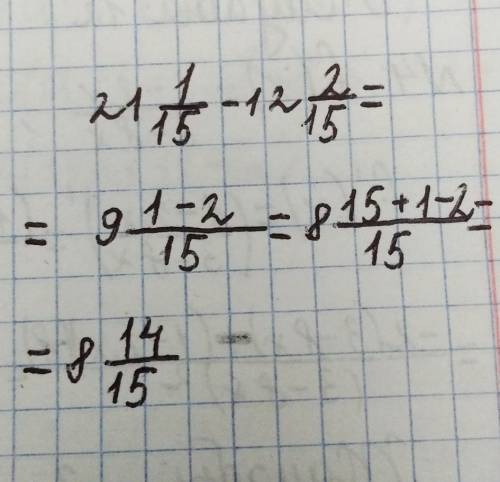 21 1/15 - 12 2/15 =
= 9 (1-2)/15 = 8 (15+1-2)/15 =
= 8 14/15